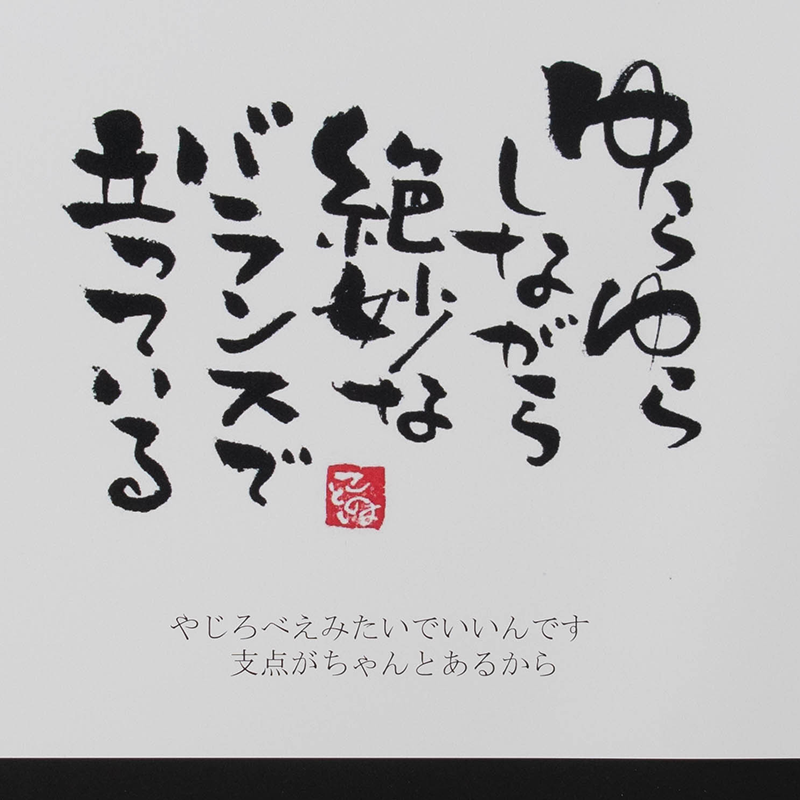 ゆらゆら
しながら
絶妙な
バランスで
立っている
ことのは
やじろべえみたいでいいんです
支点がちゃんとあるから